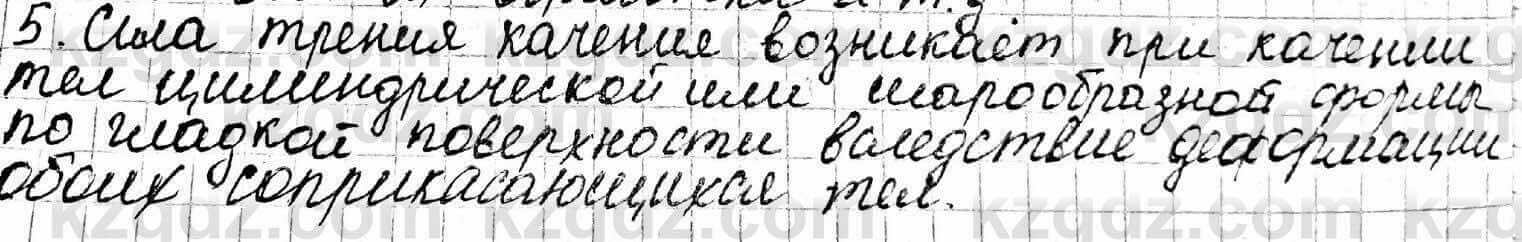 5. Сила трения качения возникает при качении
тел цилиндрической или шарообразной формы
по гладкой поверхности вследствие деформации
обоих соприкасающихся тел.
kzgdz.com